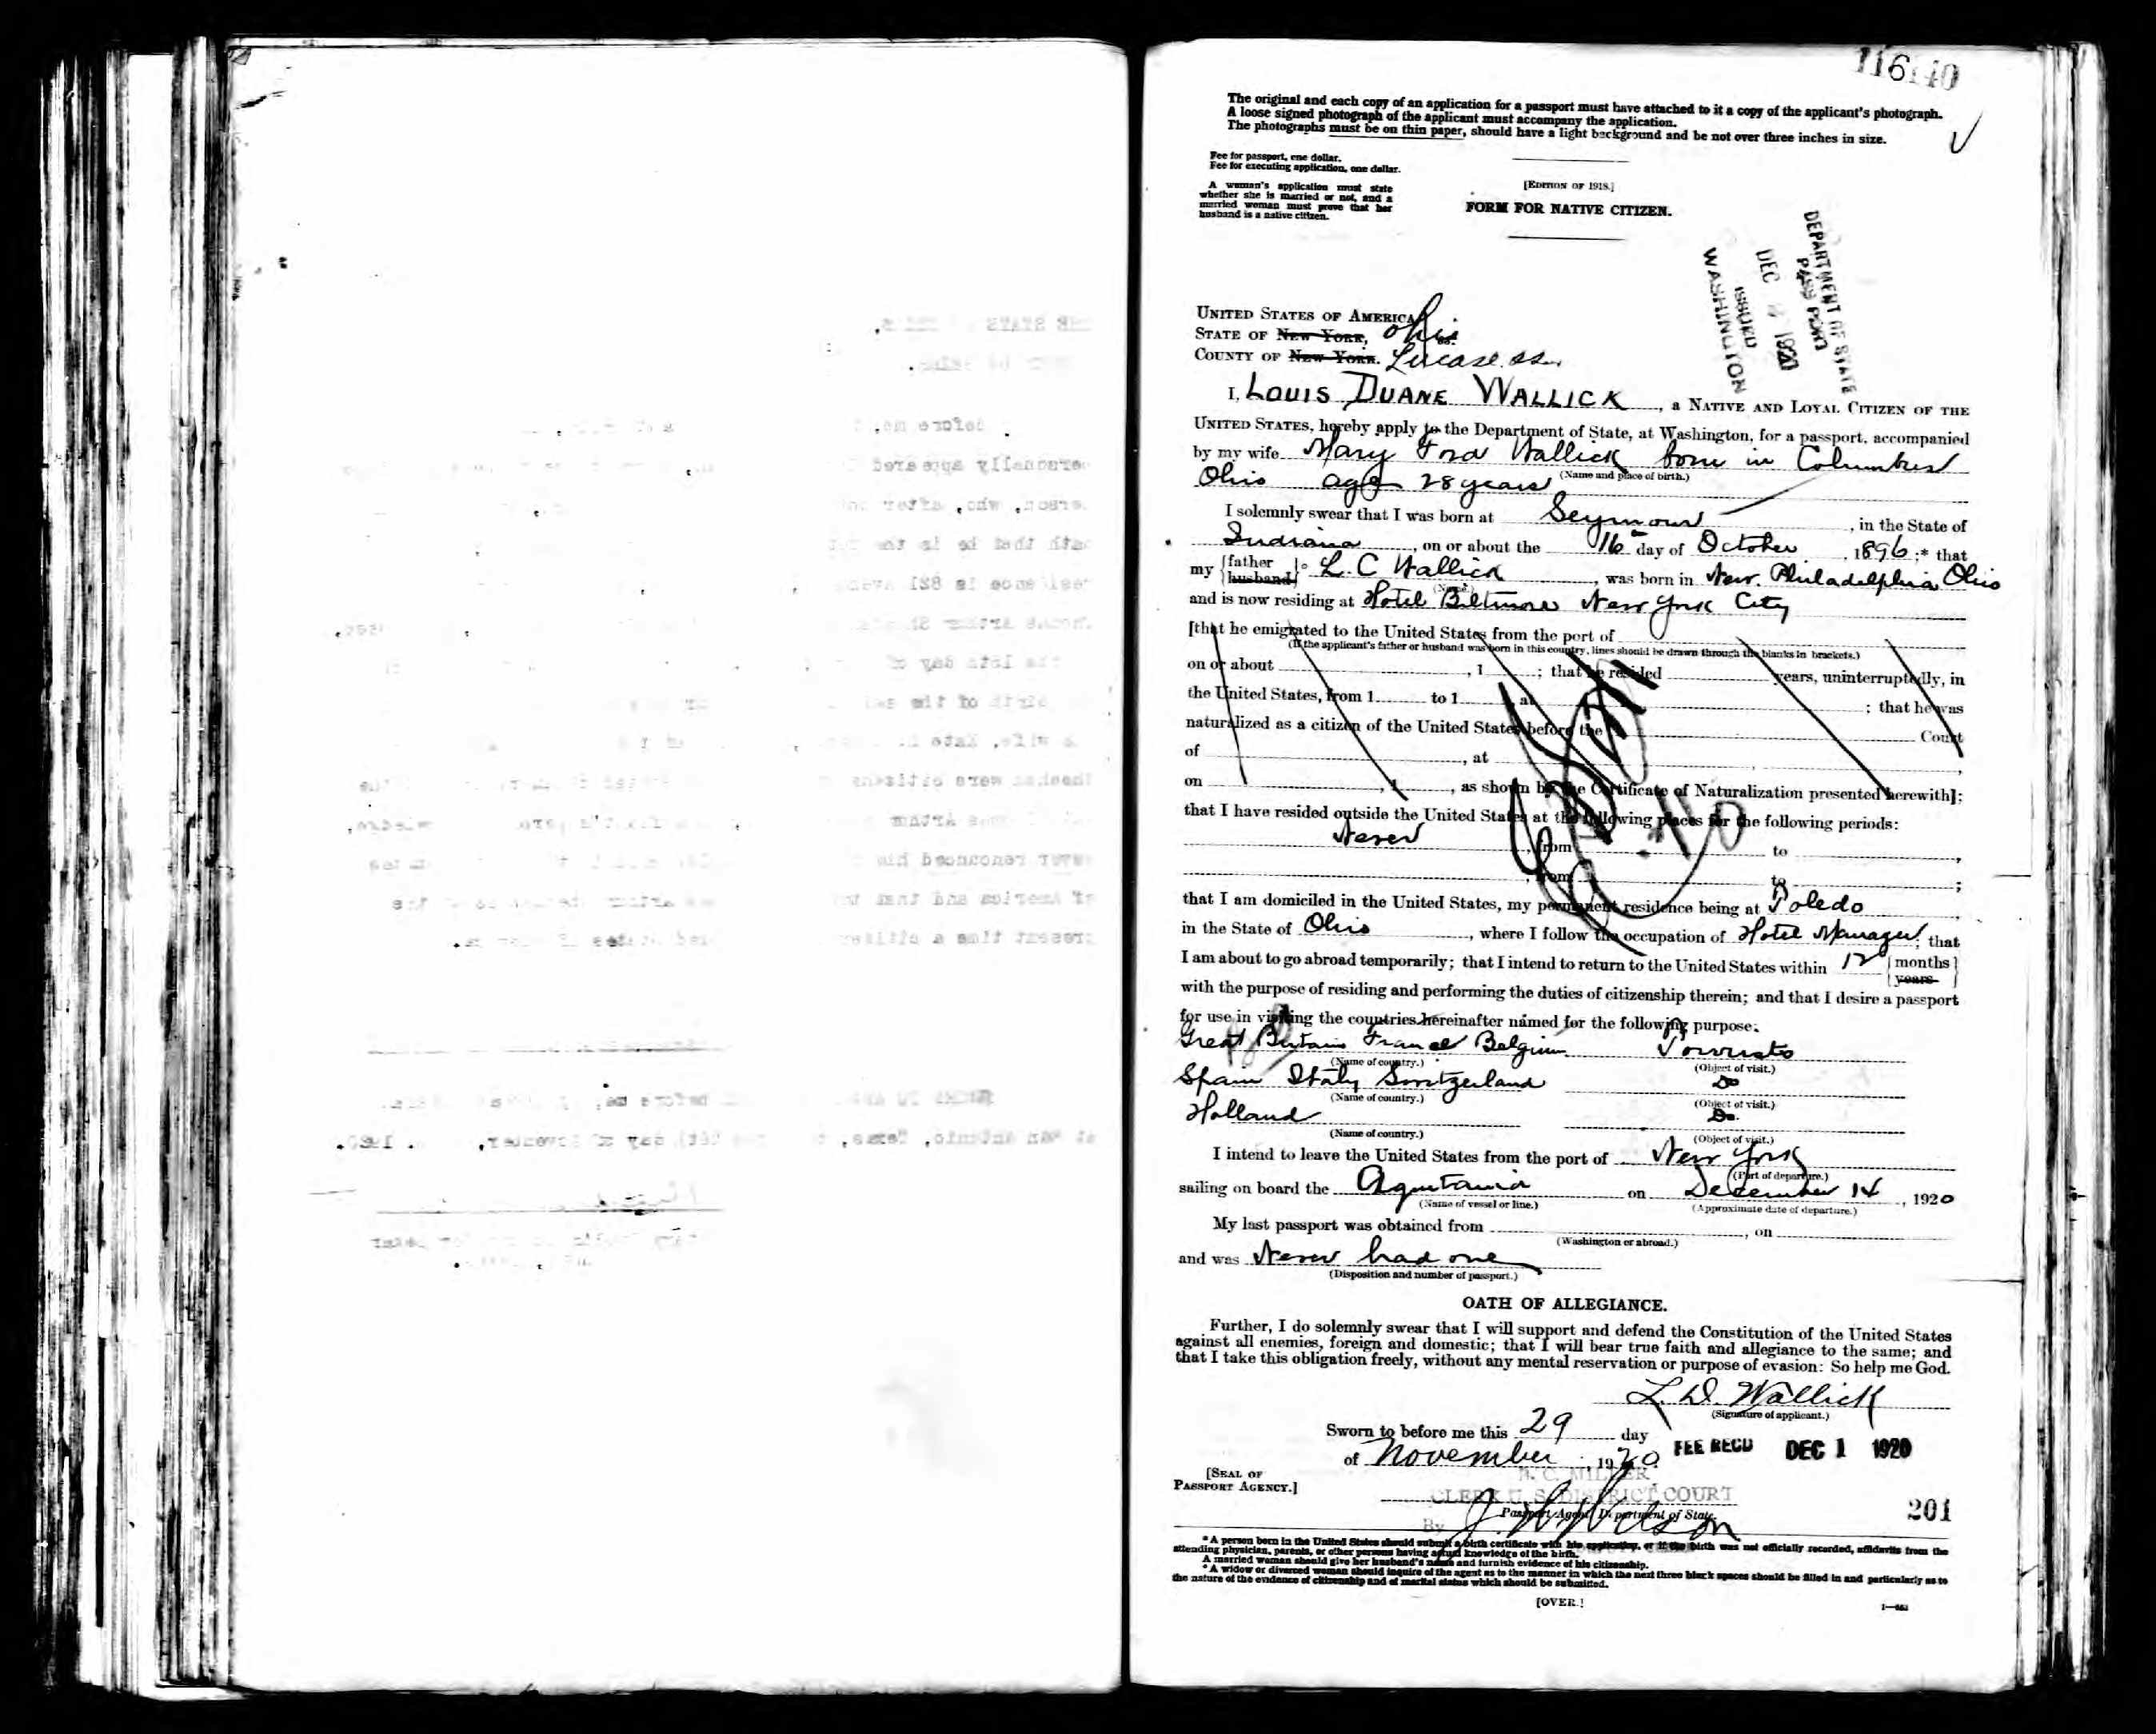 116140
The original and each copy of an application for a passport must have attached to it a copy of the applicant's photograph.
A loose signed photograph of the applicant must accompany the application.
The photographs must be on thin paper, should have a light background and be not over three inches in size.
Fee for passport, one dollar.
Fee for executing application, one dollar.
A woman's application must state
whether she is married or not, and a
married woman must prove that her
husband is a native citizen.
[EDITION OF 1918.]
FORM FOR NATIVE CITIZEN.
DEPARTMENT OF STATE
PASSPORT
DEC 1920
ISSUED
WASHINGTON
UNITED STATES OF AMERICA
STATE OF NEW YORK, Ohio ss:
COUNTY OF NEW YORK. Lucas ss.
I, LOUIS DUANE WALLICK, a NATIVE AND LOYAL CITIZEN OF THE
UNITED STATES, hereby apply to the Department of State, at Washington, for a passport, accompanied
by my wife Mary Ford Wallick born in Columbus
Ohio age 28 years (Name and place of birth.)
I solemnly swear that I was born at Seymour, in the State of
Indiana, on or about the 16 day of October, 1896;* that
my {father husband} L. C Wallick, was born in New Philadelphia Ohio
(Name.)
and is now residing at Hotel Biltmore New York City
[that he emigrated to the United States from the port of
(If the applicant's father or husband was born in this country, lines should be drawn through the blanks in brackets.)
on or about , 1 ; that he resided years, uninterruptedly, in
the United States, from 1 to 1 , at ; that he was
naturalized as a citizen of the United States before the Court
of , at ,
on , 1 , as shown by the Certificate of Naturalization presented herewith];
that I have resided outside the United States at the following places for the following periods:
Never , from to ,
, from to ;
that I am domiciled in the United States, my permanent residence being at Toledo
in the State of Ohio, where I follow the occupation of Hotel Manager; that
I am about to go abroad temporarily; that I intend to return to the United States within 12 {months years}
with the purpose of residing and performing the duties of citizenship therein; and that I desire a passport
for use in visiting the countries hereinafter named for the following purpose:
Great Britain France Belgium Tourists
(Name of country.) (Object of visit.)
Spain Italy Switzerland Do
(Name of country.) (Object of visit.)
Holland Do.
(Name of country.) (Object of visit.)
I intend to leave the United States from the port of New York
(Port of departure.)
sailing on board the Aquitania on December 14, 1920
(Name of vessel or line.) (Approximate date of departure.)
My last passport was obtained from , on
(Washington or abroad.)
and was Never had one
(Disposition and number of passport.)
OATH OF ALLEGIANCE.
Further, I do solemnly swear that I will support and defend the Constitution of the United States
against all enemies, foreign and domestic; that I will bear true faith and allegiance to the same; and
that I take this obligation freely, without any mental reservation or purpose of evasion: So help me God.
L. D. Wallick
(Signature of applicant.)
Sworn to before me this 29 day
of November, 1920.
FEE RECD DEC 1 1920
[SEAL OF
PASSPORT AGENCY.]
B. C. MILLER,
CLERK U. S. DISTRICT COURT
Passport Agent, Department of State.
By J W Wilson
201
* A person born in the United States should submit a birth certificate with his application, or if the birth was not officially recorded, affidavits from the
attending physician, parents, or other persons having actual knowledge of the birth.
A married woman should give her husband's name and furnish evidence of his citizenship.
* A widow or divorced woman should inquire of the agent as to the manner in which the next three black spaces should be filled in and particularly as to
the nature of the evidence of citizenship and of marital status which should be submitted.
[OVER.]